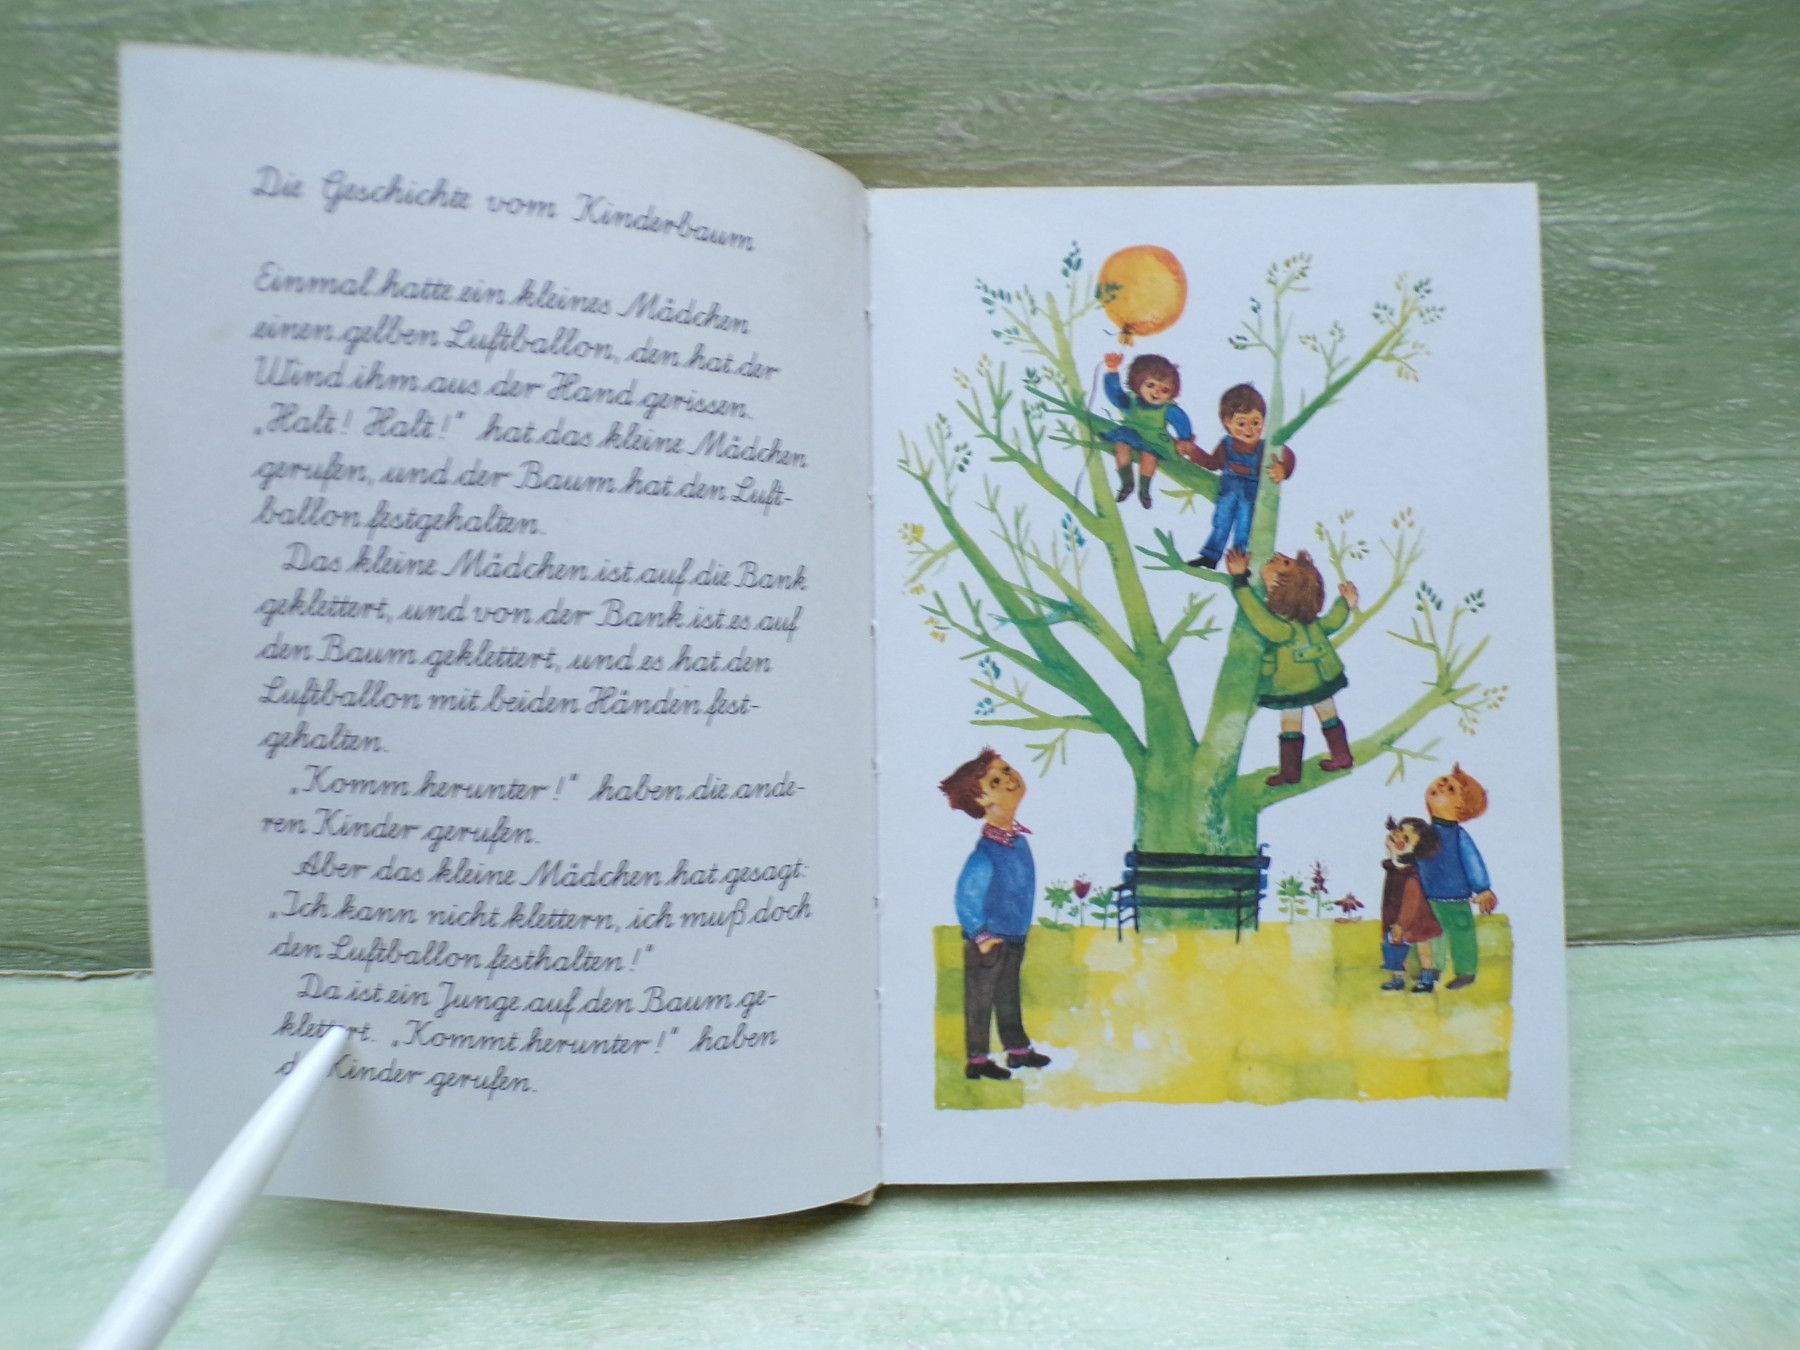 Die Geschichte vom Kinderbaum
Einmal hatte ein kleines Mädchen
einen gelben Luftballon, den hat der
Wind ihm aus der Hand gerissen.
„Halt! Halt!" hat das kleine Mädchen
gerufen, und der Baum hat den Luft-
ballon festgehalten.
Das kleine Mädchen ist auf die Bank
geklettert, und von der Bank ist es auf
den Baum geklettert, und es hat den
Luftballon mit beiden Händen fest-
gehalten.
„Komm herunter!" haben die ande-
ren Kinder gerufen.
Aber das kleine Mädchen hat gesagt:
„Ich kann nicht klettern, ich muß doch
den Luftballon festhalten!"
Da ist ein Junge auf den Baum ge-
klettert. „Kommt herunter!" haben
Kinder gerufen.